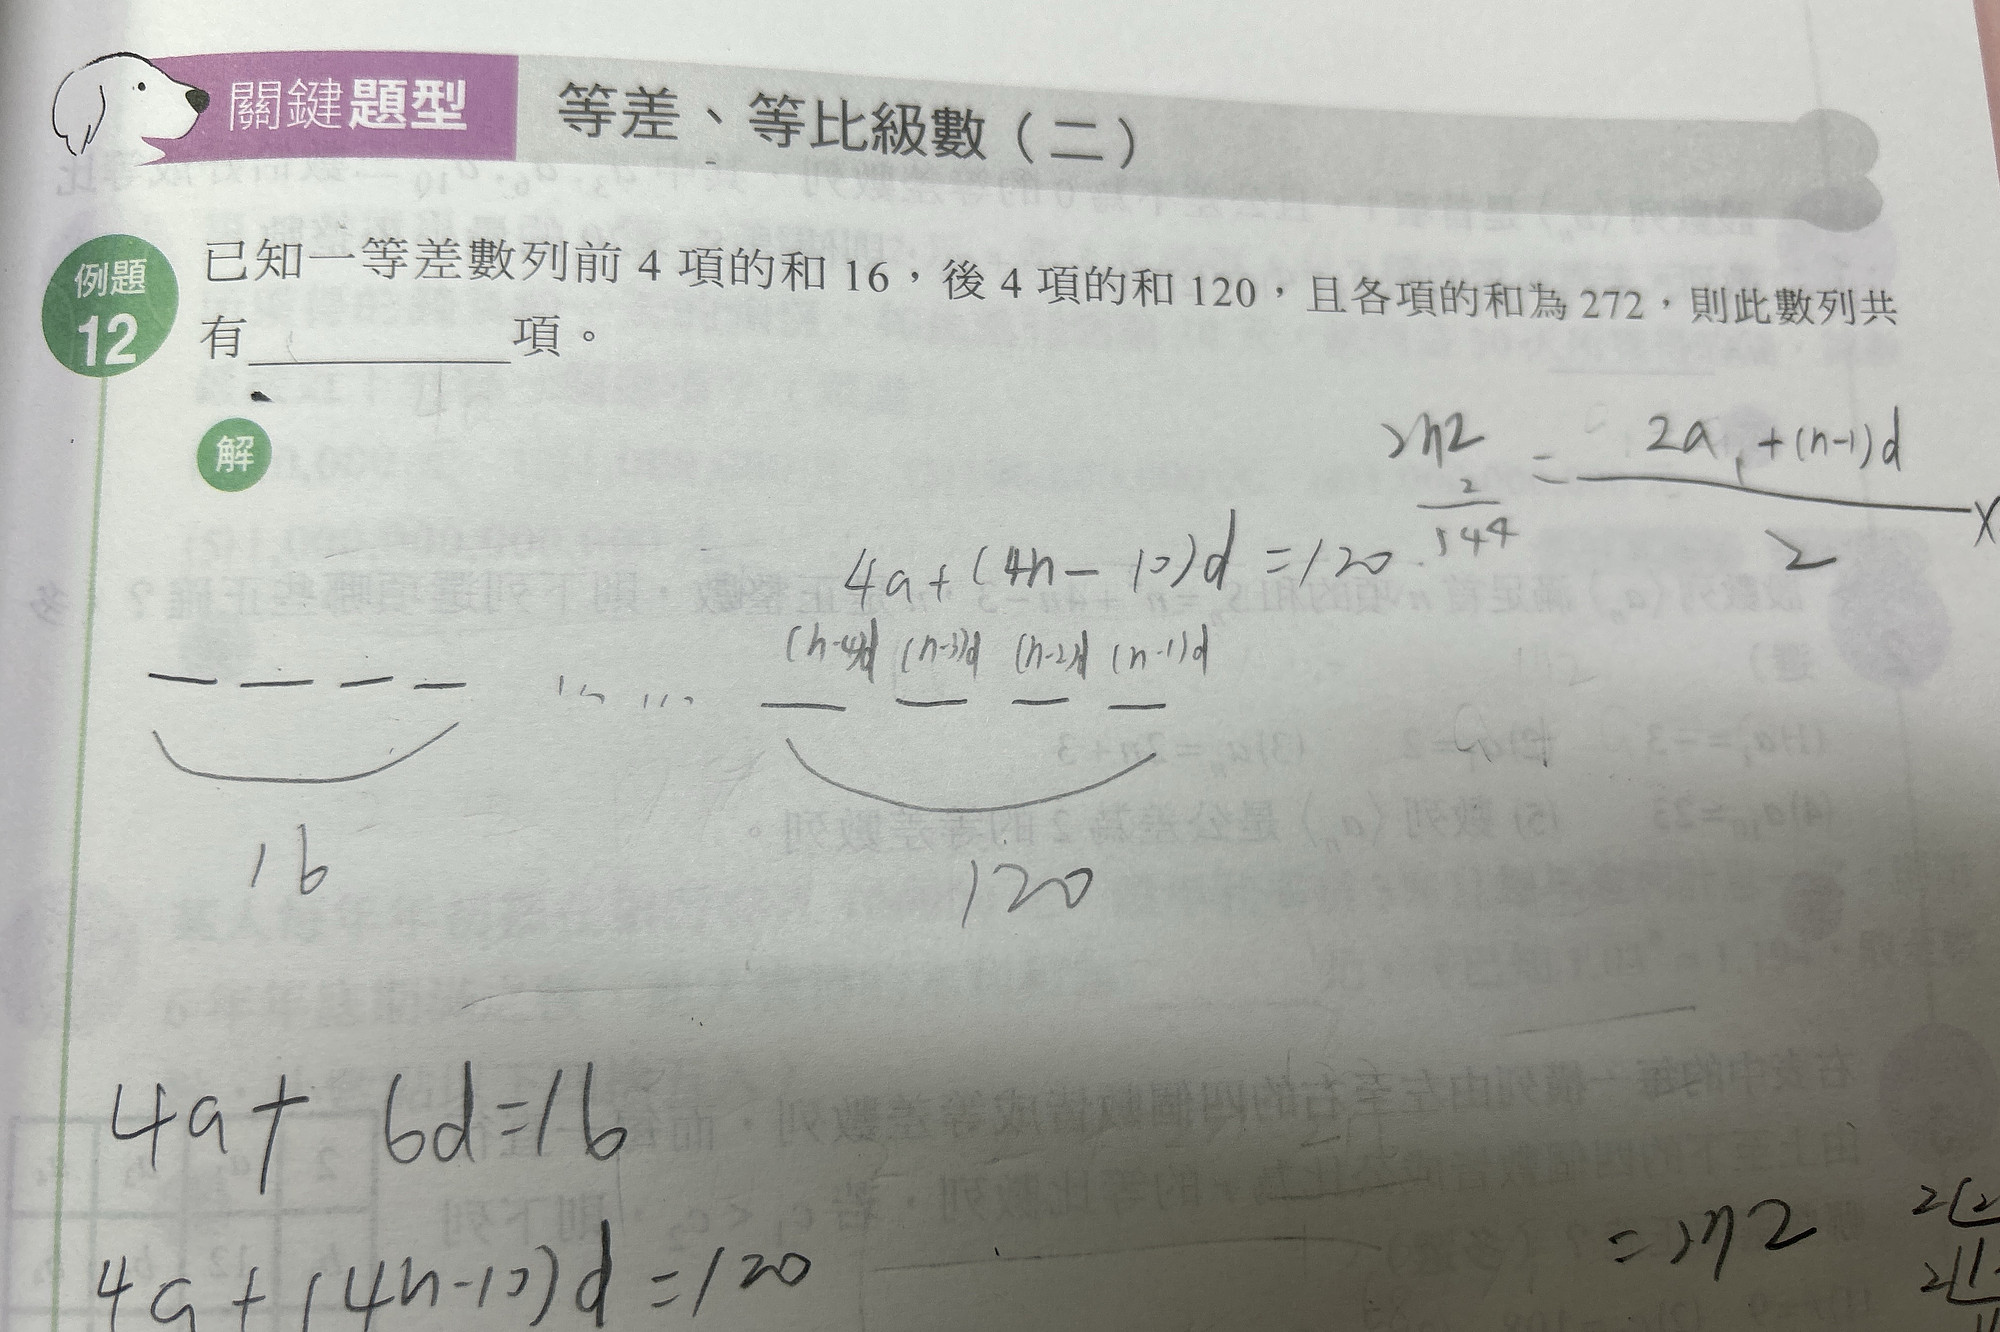 關鍵題型 等差、等比級數（二）
例題 12
已知一等差數列前 4 項的和 16，後 4 項的和 120，且各項的和為 272，則此數列共
有__________項。
解
272 = 2a₁+(n-1)d
2
144
2
4a+(4n-10)d=120
(n-4)d (n-3)d (n-2)d (n-1)d
16
120
4a+ 6d=16
=272
4a+(4n-10)d=120